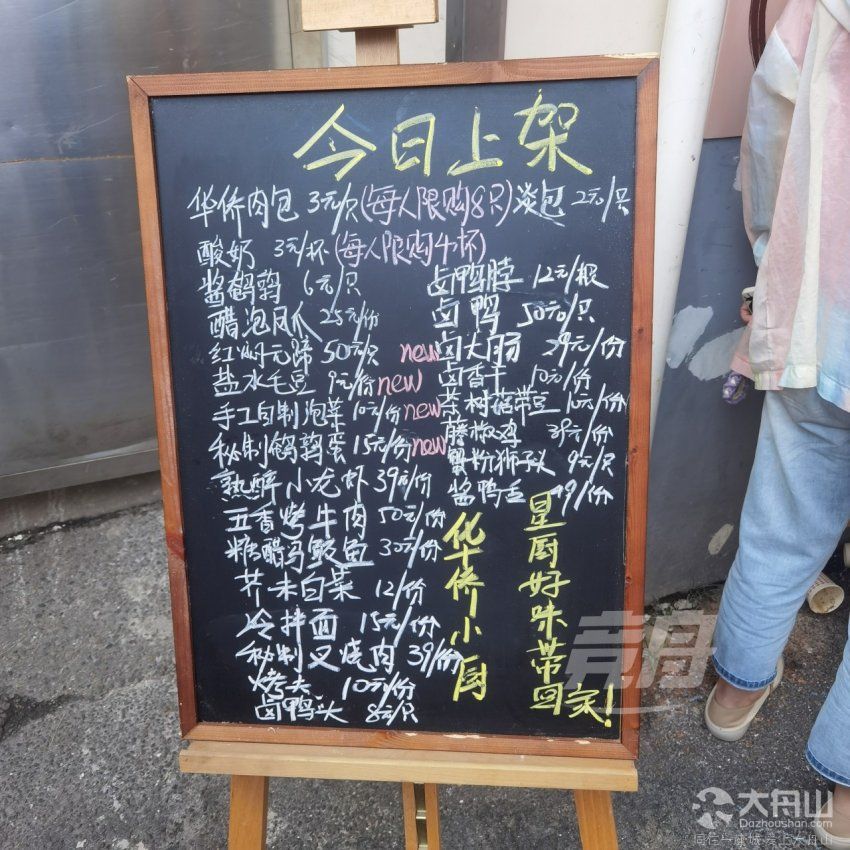 今日上架
华侨肉包 3元/只(每人限购8只) 淡包 2元/只
酸奶 3元/杯(每人限购4杯)
酱鹌鹑 6元/只
醋泡凤爪 25元/份
红焖元蹄 50元/只
盐水毛豆 9元/份
手工自制泡菜 10元/份
秘制鹌鹑蛋 15元/份
熟醉小龙虾 39元/份
五香烤牛肉 50元/份
糖醋马鲛鱼 30元/份
芥末白菜 12/份
冷拌面 15元/份
秘制叉烧肉 39/份
烤夫 10元/份
卤鸭头 8元/只
卤鸭脖 12元/根
卤鸭 50元/只
new 卤大肠 29元/份
new 卤香干 10元/份
new 茶树菇带豆 10元/份
new 藤椒鸡 39元/份
蟹粉狮子头 9元/只
酱鸭舌 99/份
华侨小厨
星厨好味带回家!
竞舟
大舟山
Dazhoushan.com
同在一座城 爱上大舟山